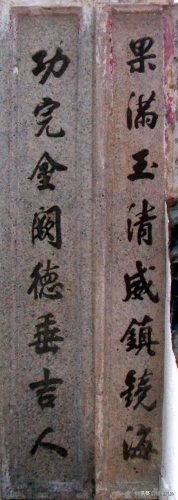 果满玉清威鎮镜海
功完金阙德垂吉人